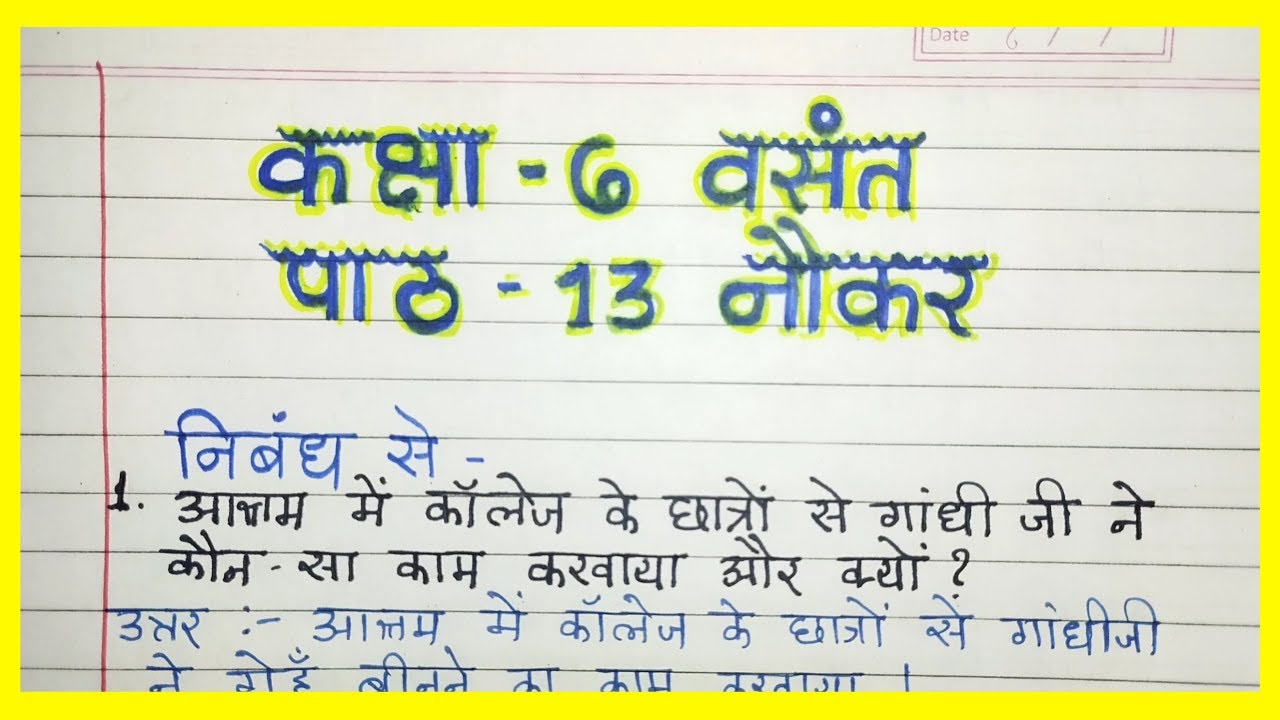 Date
कक्षा - 6 वसंत
पाठ - 13 नौकर
निबंध से -
1. आश्रम में कॉलेज के छात्रों से गांधी जी ने
कौन - सा काम करवाया और क्यों ?
उत्तर :- आश्रम में कॉलेज के छात्रों से गांधीजी
ने गेहूँ बीनने का काम करवाया ।